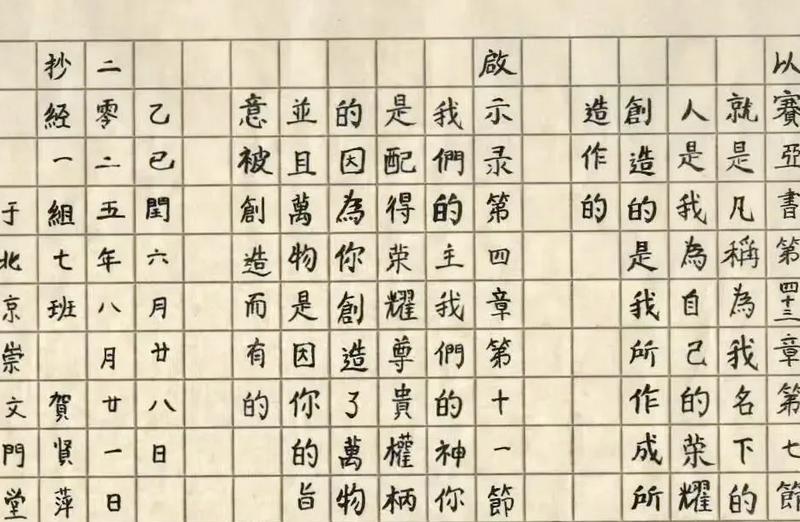 以賽亞書第四十三章第七節
就是凡稱為我名下的
人是我為自己的榮耀
創造的是我所作成所
造作的
啟示录第四章第十一節
我們的主我們的神你
是配得荣耀尊貴權柄
的因為你創造了萬物
並且萬物是因你的旨
意被創造而有的
乙巳閏六月廿八日
二零二五年八月廿一日
抄經一組七班 賀賢萍
于北京崇文門堂